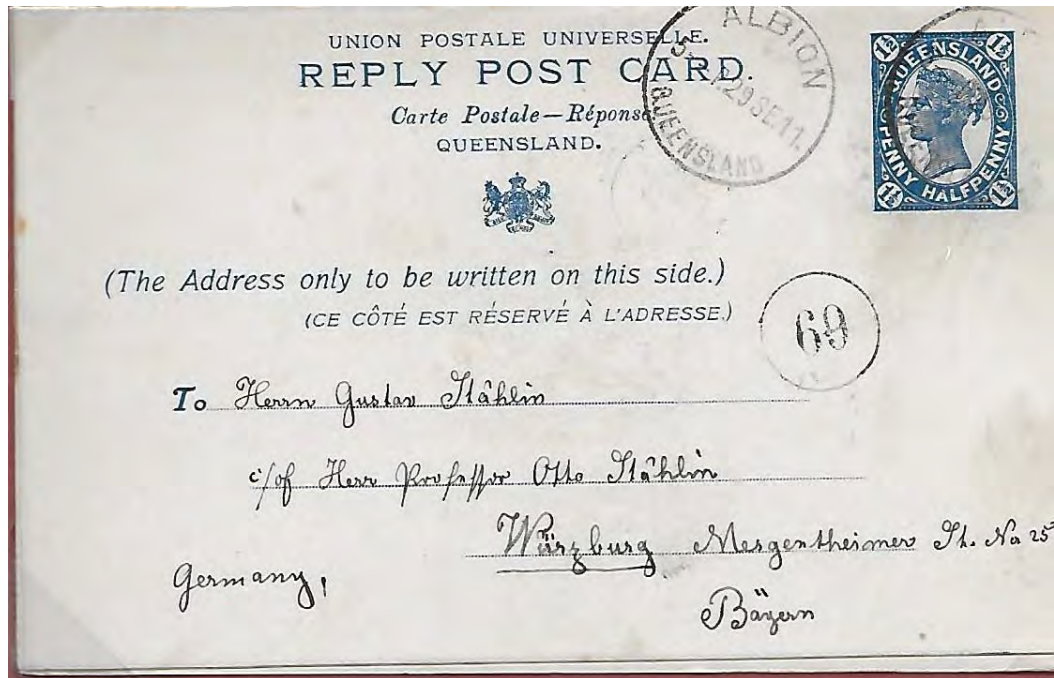 UNION POSTALE UNIVERSELLE.
REPLY POST CARD.
Carte Postale—Réponse
QUEENSLAND.
ALBION
29 SE 11
QUEENSLAND
1½ 1½
QUEENSLAND
PENNY HALFPENNY
1½ 1½
(The Address only to be written on this side.)
(CE CÔTÉ EST RÉSERVÉ À L'ADRESSE.)
69
To Herrn Gustav Stählin
c/of Herr Professor Otto Stählin
Würzburg Mergentheimer St. No 25
Germany,
Bäyern